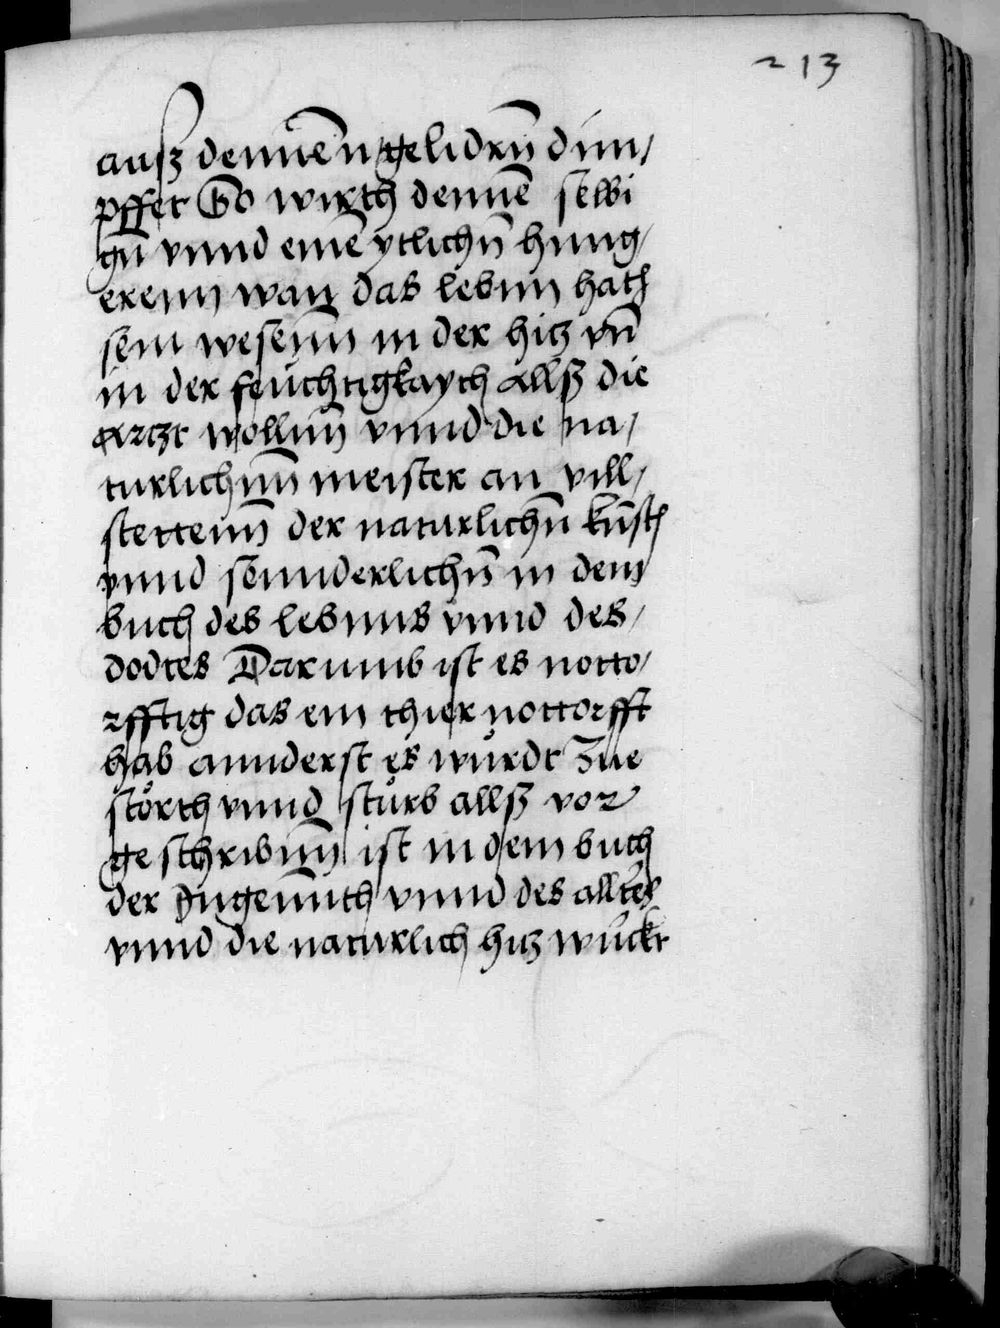 213
auß dennēn gelidrn̄ dim/
pffet So wirth dennē selbi
gn̄ vnnd einē ytlichn̄ hung/
erenn wan das lebnn hath
sein wesenn̄ in der hitz vn̄
in der feuchtigkaych allß die
artzt wollnn̄ vnnd die na/
turlichnn̄ meister an vill/
stettenn̄ der naturlichn̄ kūnsth
vnnd sennderlichn̄ in dem
buch des lebnns vnnd des/
dodtes Darumb ist es notto/
rfftig das ein thier nottorfft
hab annderst es wurdt zue
störth vnnd sturb allß vor
geschribnn̄ ist in dem buch
der Jugennth vnnd des alltes
vnnd die naturlich hitz wuckt